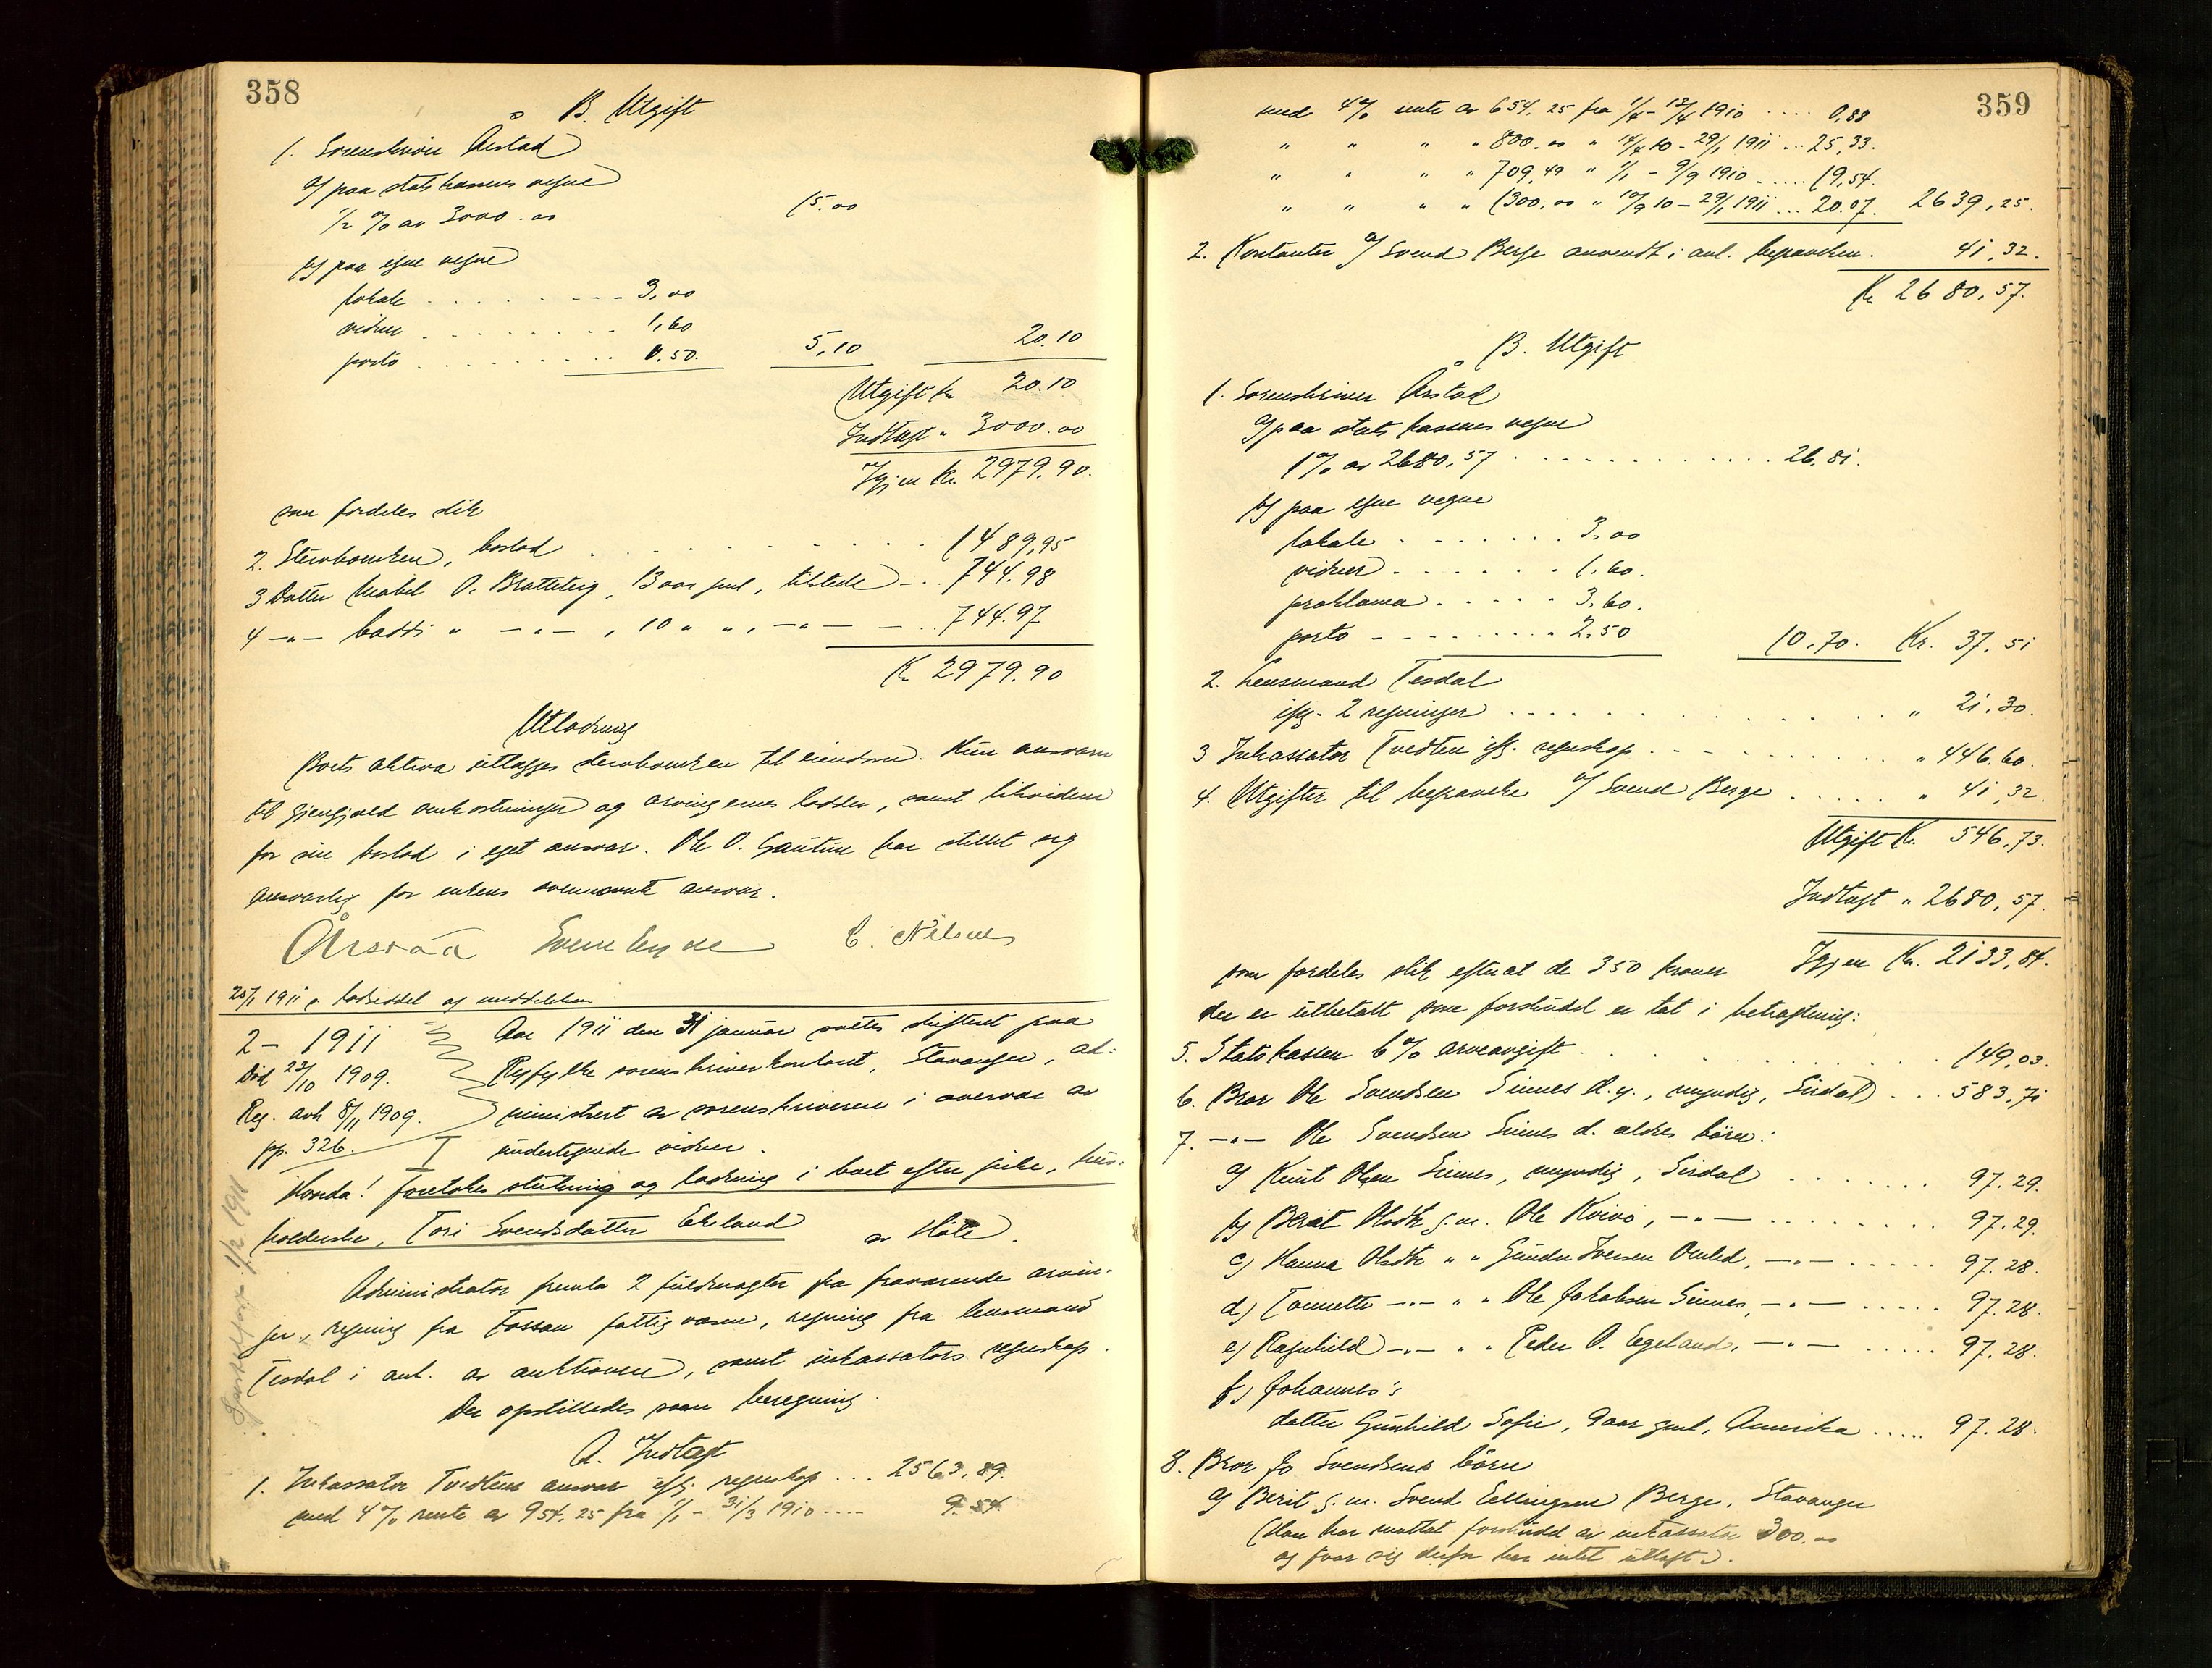 358
B. Utgift
1. Sorenskriver Årstad
a/ paa statskassens vegne
1/2 % av 3000.00 15.00
b/ paa egne vegne
lokale . . . 3,00
vidner . . . 1,60
porto . . . 0.50. 5,10 20.10
Utgift kr 20.10
Indtægt " 3000.00
Igjen kr. 2979.90.
som fordeles slik
2. Stervboenken, boslod . . . 1489,95
3 Datter Mabel O. Bratteteig, 13 aar gml, tilstede - .. 744.98
4 -"- " -"- , 10 " " , -"- - .. 744.97
Kr 2979.90
Utlodning
Boets aktiva utlægges stervboenken til eiendom. Hun ansvarer
til gjengjæld omkostninger og arvingernes lodder, samt likviderer
for sin boslod i eget ansvar. Ole O. Gautun har stillet sig
ansvarlig for enkens ovennævnte ansvar.
C. Nilsen
25/1 1911 lodseddel og meddelelse
2 - 1911 Aar 1911 den 31 januar sattes skifteret paa
Død 23/10 1909. Ryfylke sorenskriverkontoret, Stavanger, ad-
Reg. avh 8/11 1909. ministrert av sorenskriveren i overvær av
pp. 326. undertegnede vidner.
Hvorda! foretokes slutning og lodning i boet efter pike, hus-
holderske, Tori Svendsdatter Ekeland av Høle.
Administrator fremla 2 fuldmagter fra fraværende arvin-
ger, regning fra Fossan fattigvæsen, regning fra lensmand
Tesdal i anl. av auktionen, samt inkassators regnskap.
Der opstilledes saan beregning.
A. Indtægt
1. Inkassator Tvedtens ansvar iflg. regnskap ... 2563,89.
med 4% rente av 954,25 fra 1/1 - 31/3 1910 .... 9.54
359
med 4% rente av 654,25 fra 1/4 - 12/4 1910 .... 0,88
" " " " 800.00 " 14/4 10 - 29/1 1911 ... 25,33.
" " " " 709,49 " 1/1 - 9/9 1910 ..... 19,54.
" " " " 1300,00 " 10/9 10 - 29/1 1911 ... 20.07. 2639,25.
2. Kontanter a/ Svend Berge anvendt i anl. begravelsen. 41,32.
Kr 2680,57.
B. Utgift
1. Sorenskriver Årstad
a/ paa statskassens vegne
1% av 2680,57 . . . 26.81.
b/ paa egne vegne
lokale . . . 3,00
vidner . . . 1,60.
proklama . . . 3,60.
porto . . . 2.50 10.70. Kr. 37,51
2. Lensmand Tesdal
iflg. 2 regninger . . . " 21,30.
3 Inkassator Tvedten iflg. regnskap . . . " 446.60.
4. Utgifter til begravelse a/ Svend Berge . . . " 41,32.
Utgift Kr. 546,73.
Indtægt " 2680,57.
Igjen Kr. 2133,84.
som fordeles slik efterat de 350 kroner
der er utbetalt som forskudd er tat i betragtning:
5. Statskassen 6% arveavgift . . . 149,03.
6. Bror Ole Svendsen Sinnes d.y., myndig, Sirdal ... 583,71
7. -"- Ole Svendsen Sinnes d. ældres børn:
a/ Knut Olsen Sinnes, myndig, Sirdal . . . 97.29.
b/ Berit Olsdtr g.m. Ole Kvivo, -"- . . . 97.29.
c) Hanna Olsdtr " " Gunder Iversen Omlid, -"- ..... 97.28.
d) Tonnette -"- " " Ole Jakobsen Sinnes, -"- ..... 97.28.
e) Ragnhild -"- " " Peder O. Egeland, -"- ..... 97.28.
f) Johannes's
datter Gunhild Sofie, 9 aar gml, Amerika ..... 97.28.
8. Bror Jo Svendsens børn
a/ Berit g.m. Svend Eellingsen Berge, Stavanger
(Han har mottat forskudd av inkassator 300.00
og faar sig derfor her intet utlagt).